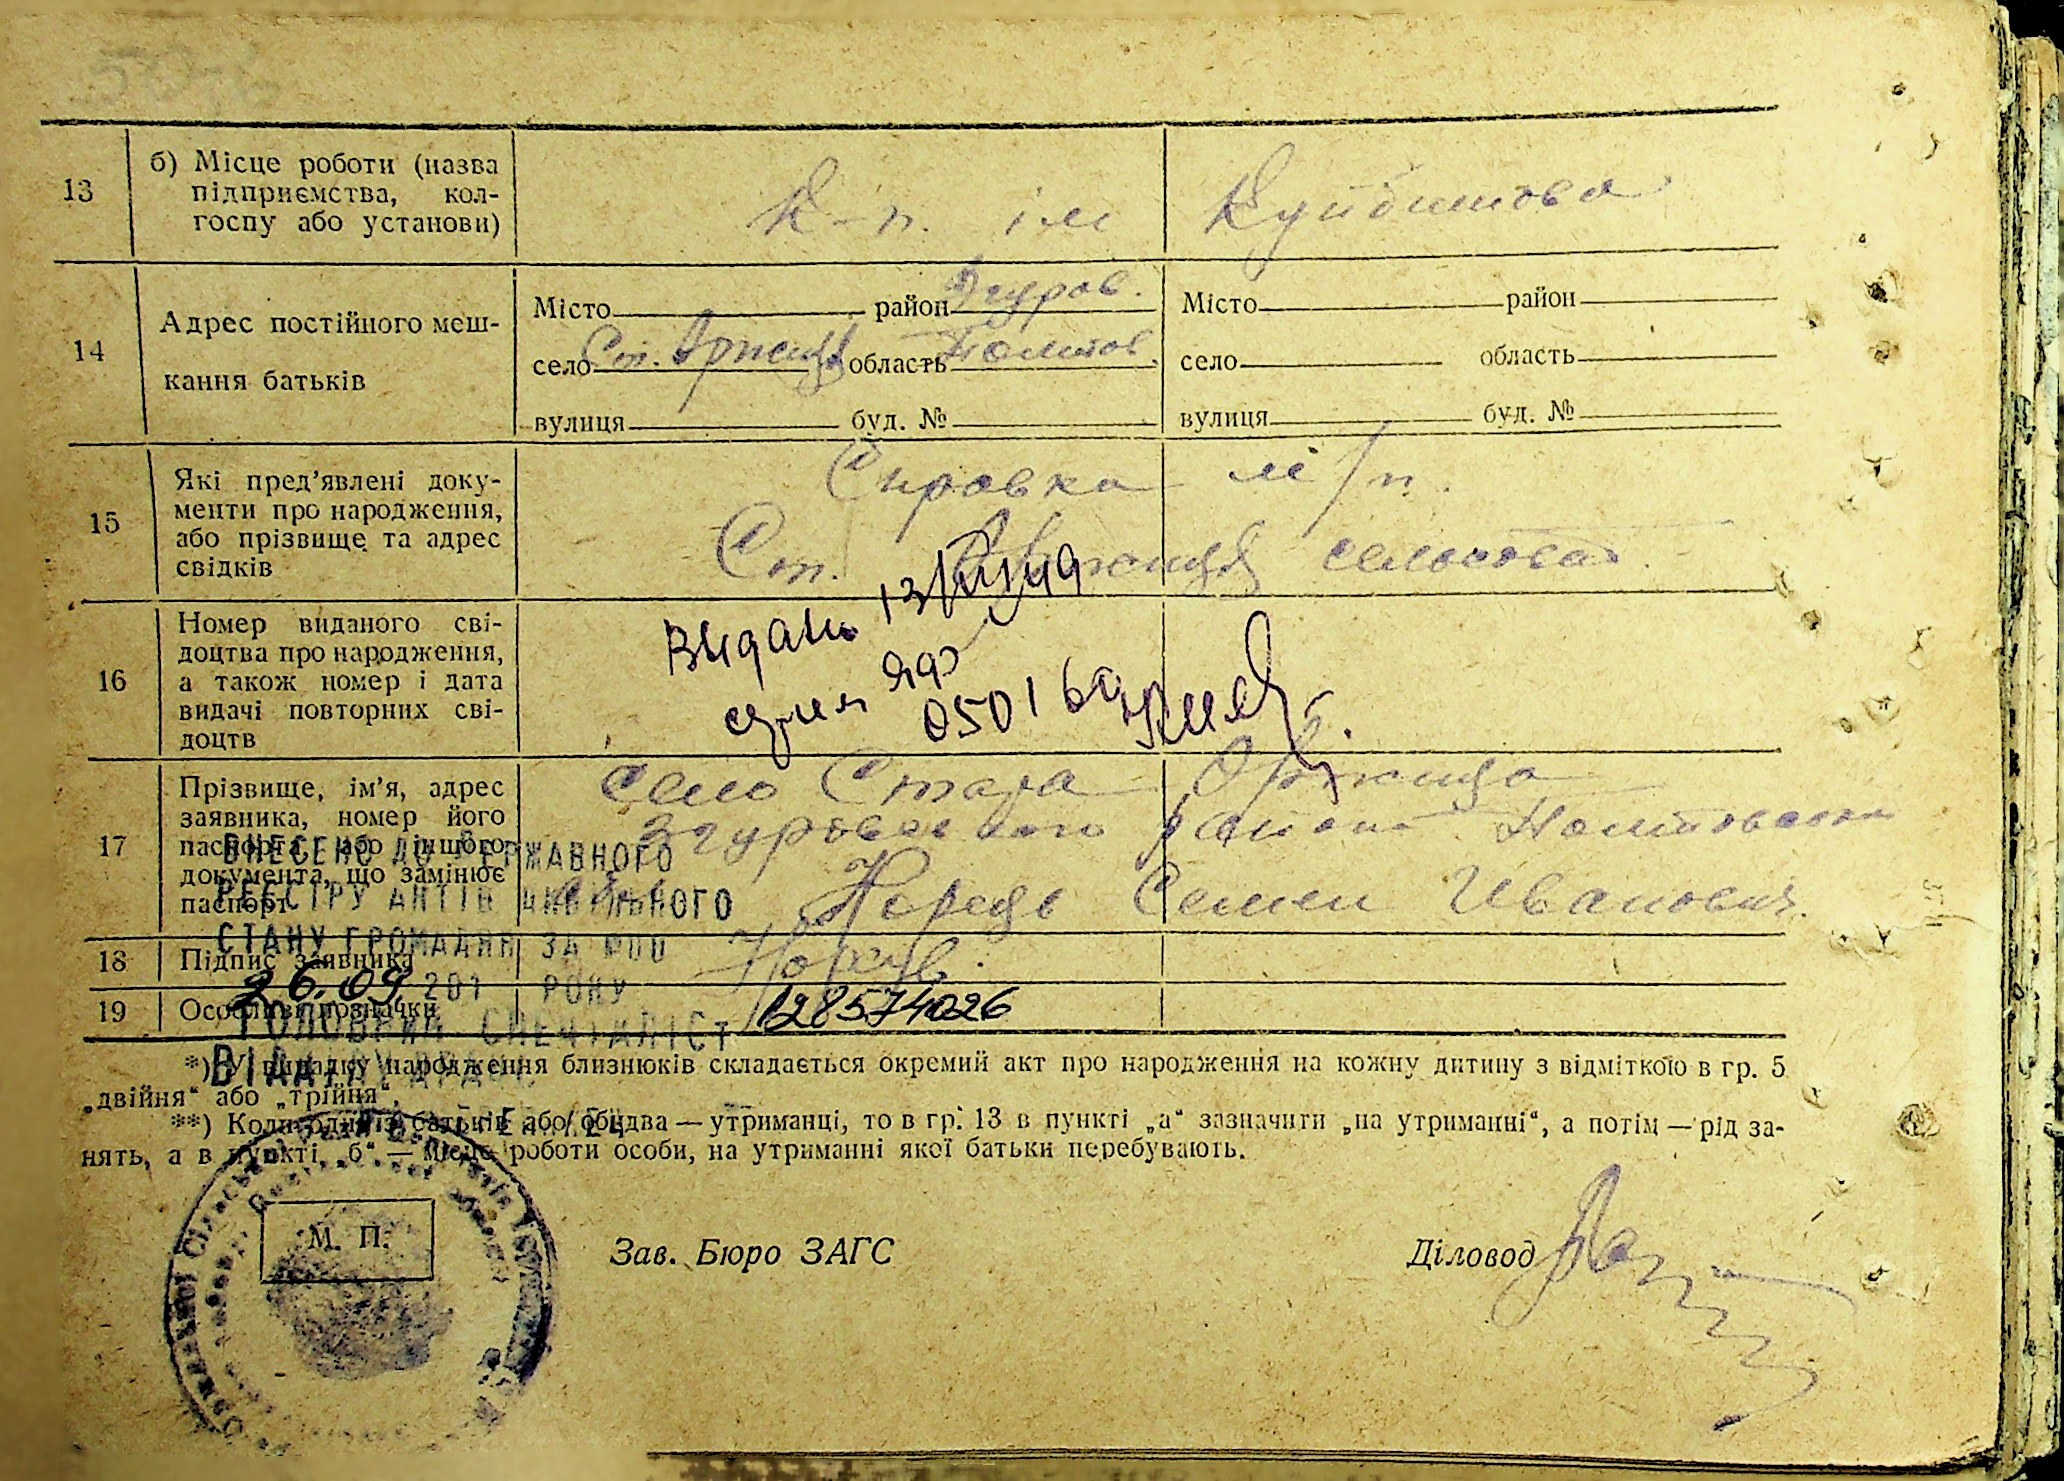 13
б) Місце роботи (назва
підприємства, кол-
госпу або установи)
К-п. ім Куйбишова
14
Адрес постійного меш-
кання батьків
Місто район Згуров.
село Ст. Оржиця область Полтов.
вулиця буд. №
Місто район
село область
вулиця буд. №
15
Які пред’явлені доку-
менти про народження,
або прізвище та адрес
свідків
Справка м/п.
Ст. Оржицкий сельсовет.
16
Номер виданого сві-
доцтва про народження,
а також номер і дата
видачі повторних сві-
доцтв
13/VIII/49
серия
17
Прізвище, ім’я, адрес
заявника, номер його
паспорта, або іншого
документа, що замінює
паспорт
село Стара Оржица
Згуровского района Полтовской
Семен Иванович.
18
Підпис заявника
19
Особливі позначки
128574026
ВНЕСЕНО ДО ДЕРЖАВНОГО
РЕЄСТРУ АКТІВ ЦИВІЛЬНОГО
СТАНУ ГРОМАДЯН ЗА
26.09 201 РОКУ
ГОЛОВНИЙ СПЕЦІАЛІСТ
*) У випадку народження близнюків складається окремий акт про народження на кожну дитину з відміткою в гр. 5
„двійня“ або „трійня“.
**) Коли один із батьків або обидва — утриманці, то в гр. 13 в пункті „а“ зазначити „на утриманні“, а потім — рід за-
нять, а в пункті „б“ — місце роботи особи, на утриманні якої батьки перебувають.
М. П.
Зав. Бюро ЗАГС
Діловод